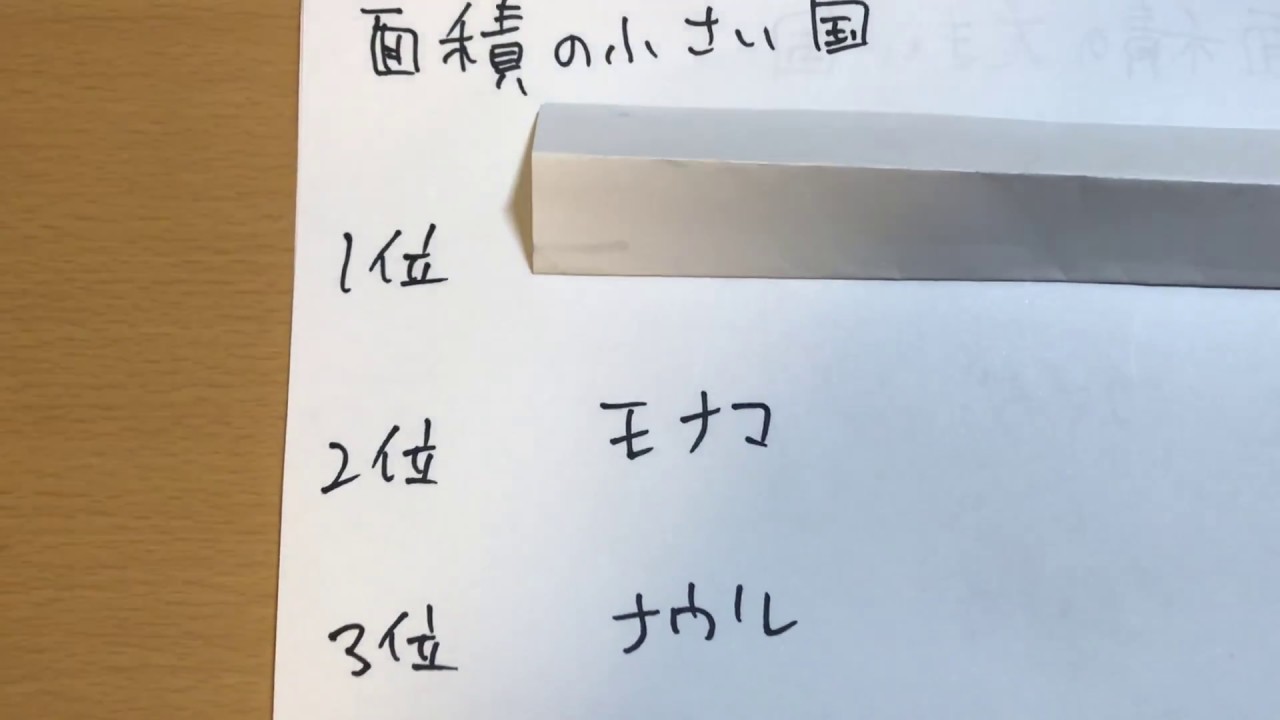 面積の小さい国
1位
2位 モナコ
3位 ナウル